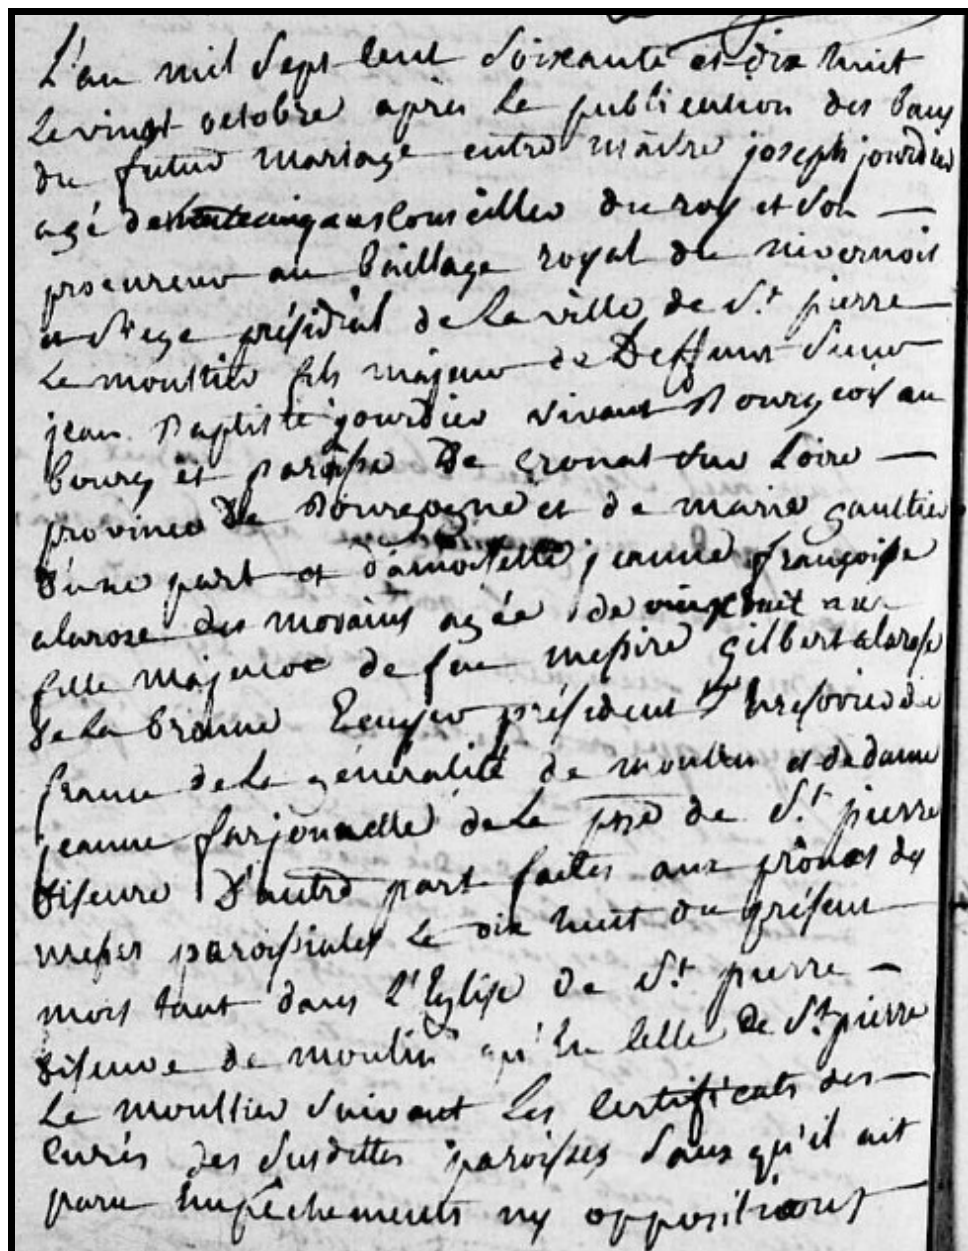 L'an mil sept cent soixante et dix huit
le vingt octobre après la publication des bans
du futur mariage entre maitre joseph jourdier
agé de trente cinq ans Conseiller du roy et son
procureur au bailliage royal du nivernois
et siege présidial de la ville de St pierre
le moultier fils majeur de Deffunt sieur
jean Baptiste jourdier vivant Bourgeois au
bourg et paroisse De Cronat sur Loire
province De Bourgogne et de marie gaultier
d'une part et damoiselle jeanne françoise
alarose des morains agée de vingt huit ans
fille majeure de feu messire gilbert alarose
de la bronne Ecuyer président trésorier de
france de la généralité de moulin et de dame
jeanne farjonnelle de la psse de St pierre
diseure D'autre part faites aux prônes des
messes paroissiales le dix huit du présent
mois tant dans l'Eglise De St pierre
diseure de moulin qu'En Celle De St pierre
le moultier suivant les Certificats des
Curés des susdittes paroisses sans qu'il ait
paru Empêchements ny oppositions